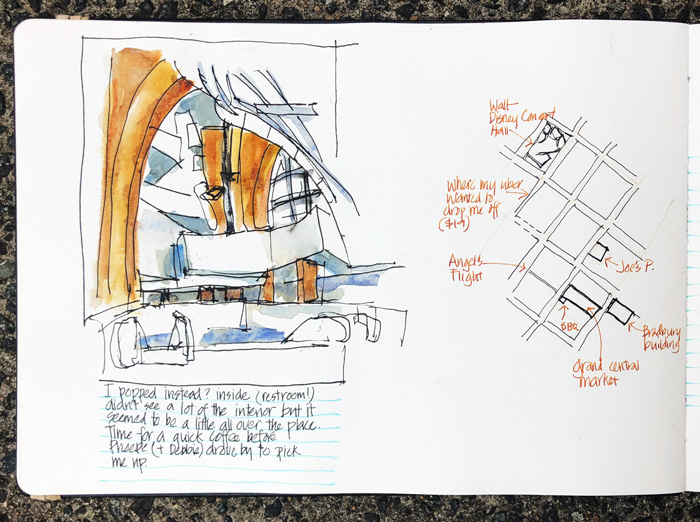 I popped instead? inside (restroom!)
didn't see a lot of the interior but it
seemed to be a little all over the place.
Time for a quick coffee before
Phoebe (+ Debbie) drove by to pick
me up.
Walt
Disney Concert
Hall
Where my uber
wanted to
drop me off
Angels
Flight
Joe's P.
BBQ
Bradbury
building
grand central
market